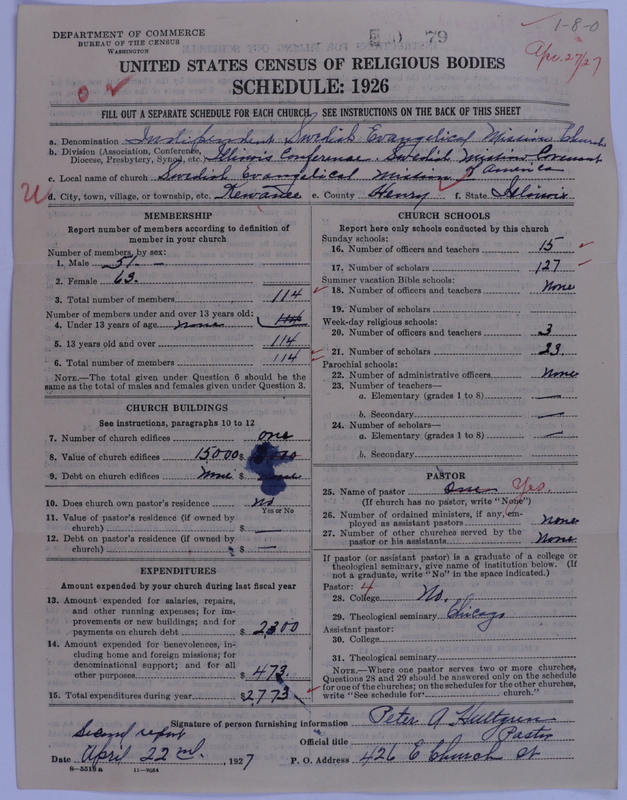 DEPARTMENT OF COMMERCE
BUREAU OF THE CENSUS
WASHINGTON
79
1-8-0
Apr. 27/27
UNITED STATES CENSUS OF RELIGIOUS BODIES
SCHEDULE: 1926
FILL OUT A SEPARATE SCHEDULE FOR EACH CHURCH. SEE INSTRUCTIONS ON THE BACK OF THIS SHEET
a. Denomination Independent Swedish Evangelical Mission Church
b. Division (Association, Conference, Diocese, Presbytery, Synod, etc. Illinois Conference. Swedish Mission Covenant
of America
c. Local name of church Swedish Evangelical Mission
d. City, town, village, or township, etc. Kewanee e. County Henry f. State Illinois
MEMBERSHIP
Report number of members according to definition of
member in your church
Number of members, by sex:
1. Male 51
2. Female 63.
3. Total number of members 114
Number of members under and over 13 years old:
4. Under 13 years of age none
5. 13 years old and over 114
6. Total number of members 114
NOTE.—The total given under Question 6 should be
same as the total of males and females given under Question 3.
CHURCH BUILDINGS
See instructions, paragraphs 10 to 12
7. Number of church edifices one
8. Value of church edifices 15000 $
9. Debt on church edifices none $ none
10. Does church own pastor's residence no
Yes or No
11. Value of pastor's residence (if owned by
church) $ —
12. Debt on pastor's residence (if owned by
church) $ —
EXPENDITURES
Amount expended by your church during last fiscal year
13. Amount expended for salaries, repairs,
and other running expenses; for im-
provements or new buildings; and for
payments on church debt $ 2300
14. Amount expended for benevolences, in-
cluding home and foreign missions; for
denominational support; and for all
other purposes $ 473.
15. Total expenditures during year $ 2773
CHURCH SCHOOLS
Report here only schools conducted by this church
Sunday schools:
16. Number of officers and teachers 15
17. Number of scholars 127
Summer vacation Bible schools:
18. Number of officers and teachers None
19. Number of scholars
Week-day religious schools:
20. Number of officers and teachers 3
21. Number of scholars 23.
Parochial schools:
22. Number of administrative officers None
23. Number of teachers—
a. Elementary (grades 1 to 8) —
b. Secondary —
24. Number of scholars—
a. Elementary (grades 1 to 8) —
b. Secondary
PASTOR
25. Name of pastor one Yes.
(If church has no pastor, write "None")
26. Number of ordained ministers, if any, em-
ployed as assistant pastors none
27. Number of other churches served by the
pastor or his assistants None
If pastor (or assistant pastor) is a graduate of a college or
theological seminary, give name of institution below. (If
not a graduate, write "No" in the space indicated.)
Pastor: 4
28. College No.
29. Theological seminary Chicago
Assistant pastor:
30. College
31. Theological seminary
NOTE.—Where one pastor serves two or more churches,
Questions 28 and 29 should be answered only on the schedule
for one of the churches; on the schedules for the other churches,
write "See schedule for church."
Signature of person furnishing information Peter A Hultgren
Official title Pastor
Second report
Date April 22nd, 1927 P. O. Address 426 E Church st
8—5518 a 11—9084